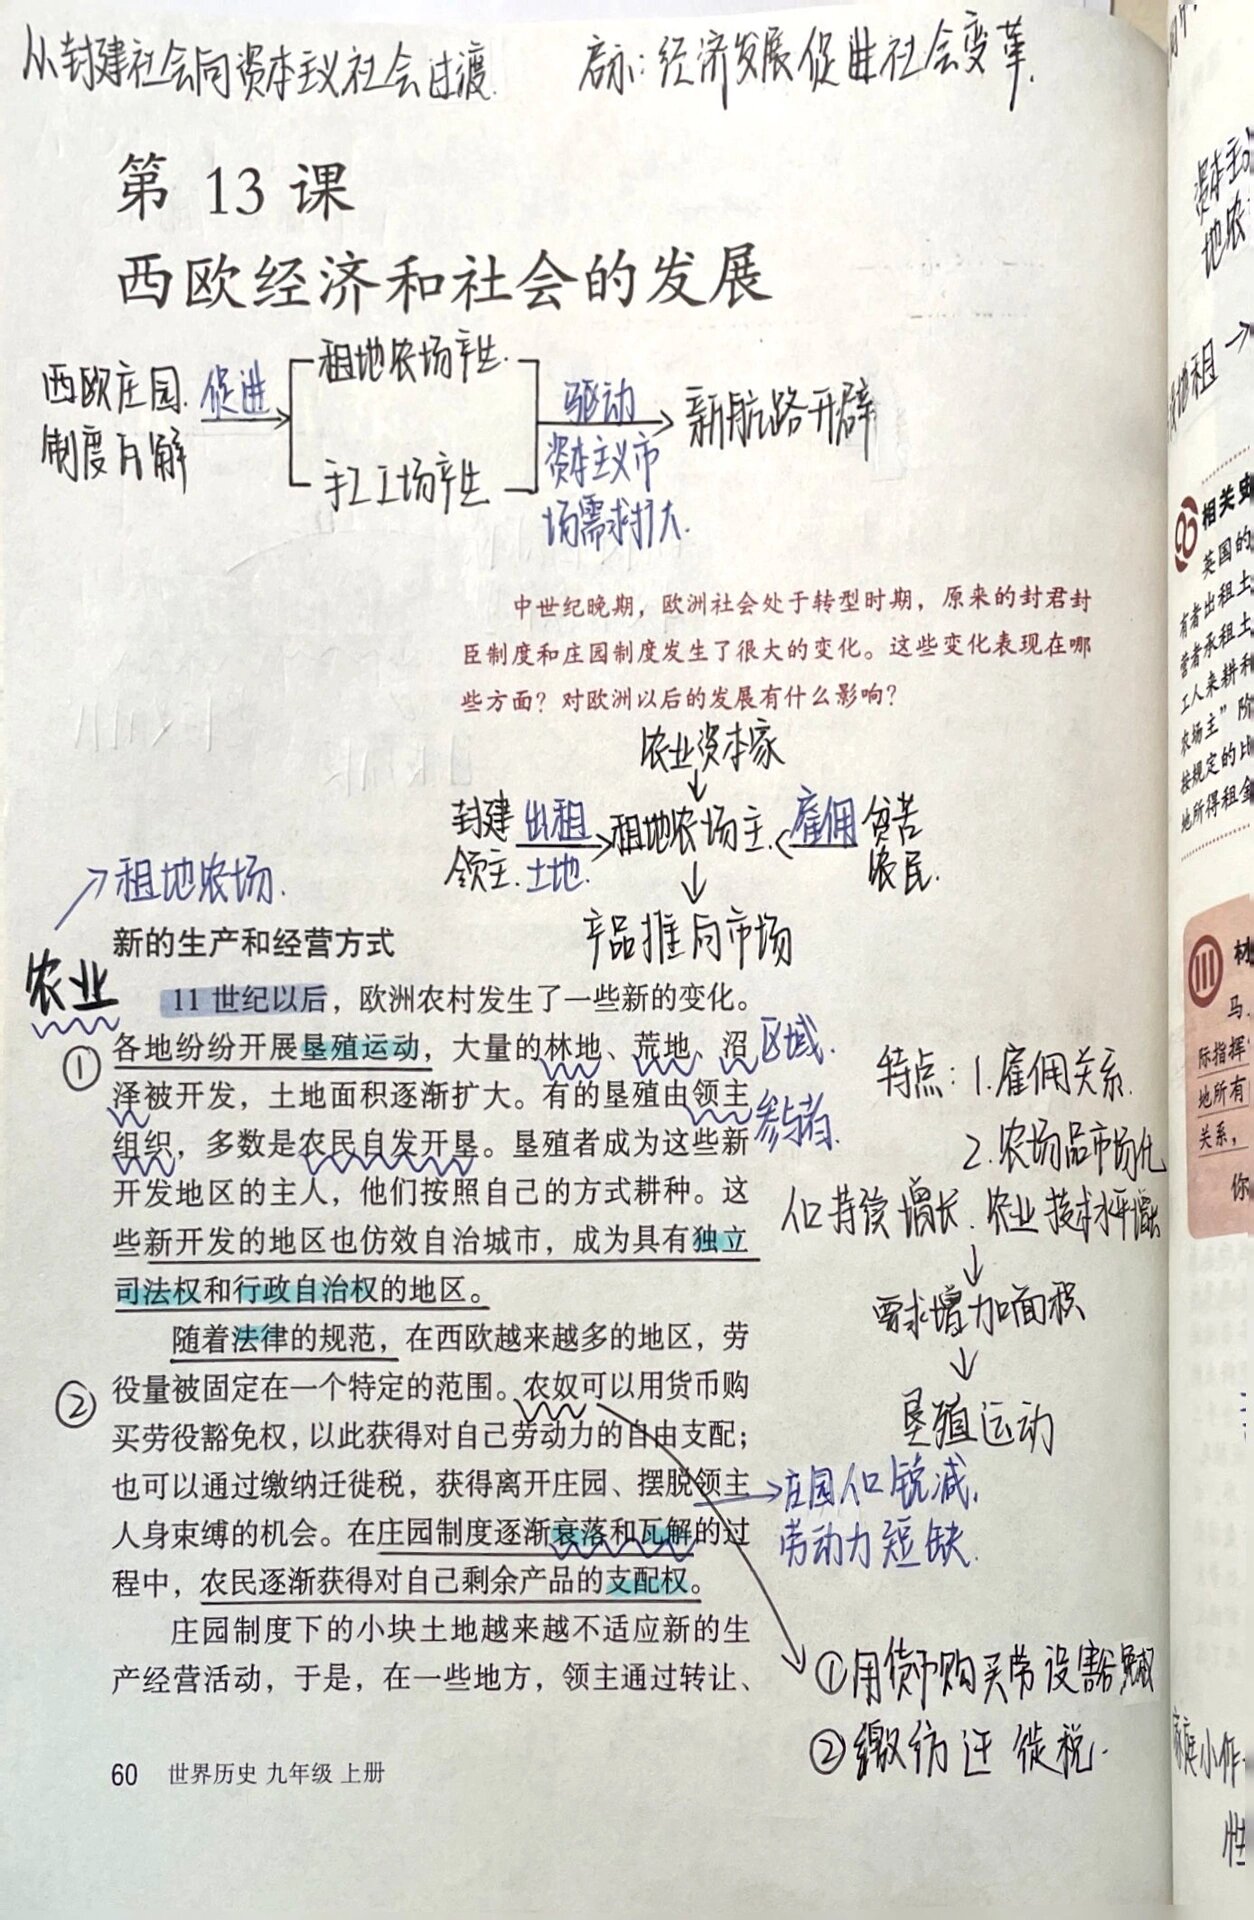 从封建社会向资本主义社会过渡.
启示:经济发展促进社会变革.
第 13 课
西欧经济和社会的发展
西欧庄园
制度瓦解
促进
租地农场产生.
手工工场产生
驱动
资本主义市
场需求扩大.
新航路开辟
中世纪晚期，欧洲社会处于转型时期，原来的封君封
臣制度和庄园制度发生了很大的变化。这些变化表现在哪
些方面？对欧洲以后的发展有什么影响？
农业资本家
封建
领主.
出租
土地.
租地农场主.
雇佣
贫苦
农民.
产品推向市场
租地农场.
新的生产和经营方式
农业
11 世纪以后，欧洲农村发生了一些新的变化。
①
各地纷纷开展垦殖运动，大量的林地、荒地、沼
泽被开发，土地面积逐渐扩大。有的垦殖由领主
组织，多数是农民自发开垦。垦殖者成为这些新
开发地区的主人，他们按照自己的方式耕种。这
些新开发的地区也仿效自治城市，成为具有独立
司法权和行政自治权的地区。
区域.
参与者.
特点:1.雇佣关系.
2.农场品市场化
人口持续增长.农业技术水平增长
需求增加面积
垦殖运动
随着法律的规范，在西欧越来越多的地区，劳
②
役量被固定在一个特定的范围。农奴可以用货币购
买劳役豁免权，以此获得对自己劳动力的自由支配；
也可以通过缴纳迁徙税，获得离开庄园、摆脱领主
人身束缚的机会。在庄园制度逐渐衰落和瓦解的过
程中，农民逐渐获得对自己剩余产品的支配权。
庄园人口锐减,
劳动力短缺.
庄园制度下的小块土地越来越不适应新的生
产经营活动，于是，在一些地方，领主通过转让、
①用货币购买劳役豁免权
②缴纳迁徙税.
60 世界历史 九年级 上册
资本主
地农
地租
相关史
英国的
有者出租土
营者承租土
工人来耕种
农场主”阶
按规定的比
地所得租金
材
马
际指挥
地所有
关系，
你
家庭小作